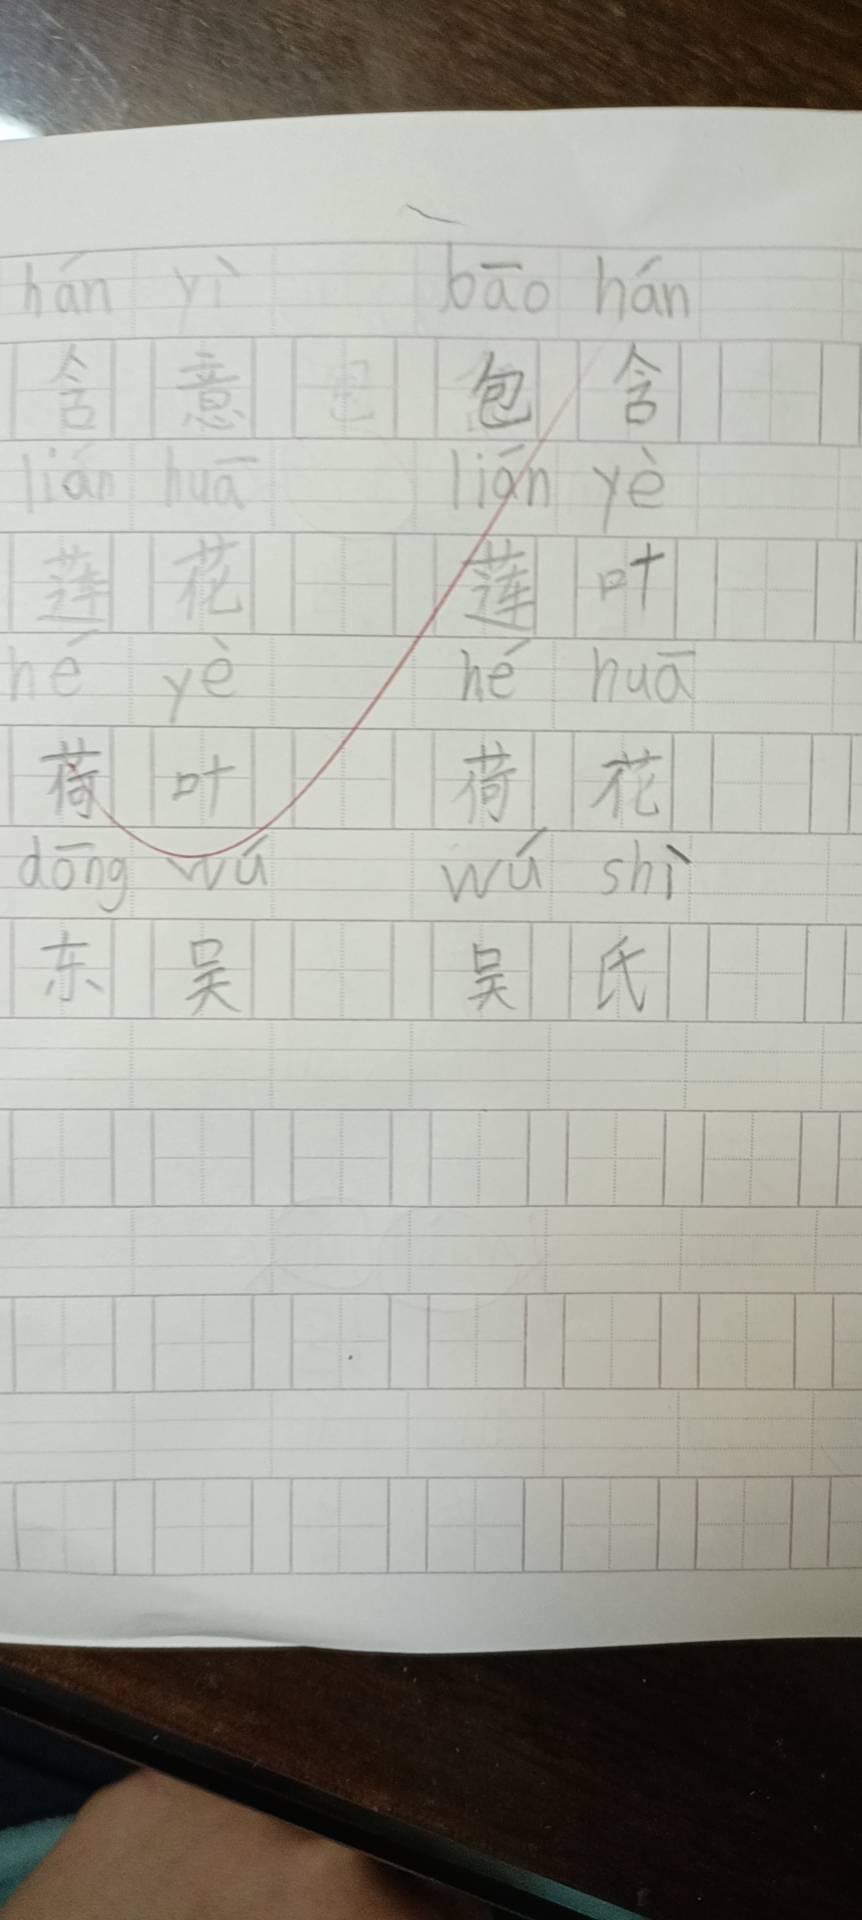 hán yì bāo hán
含意 包含
lián huā lián yè
莲花 莲叶
hé yè hé huā
荷叶 荷花
dōng wú wú shì
东吴 吴氏